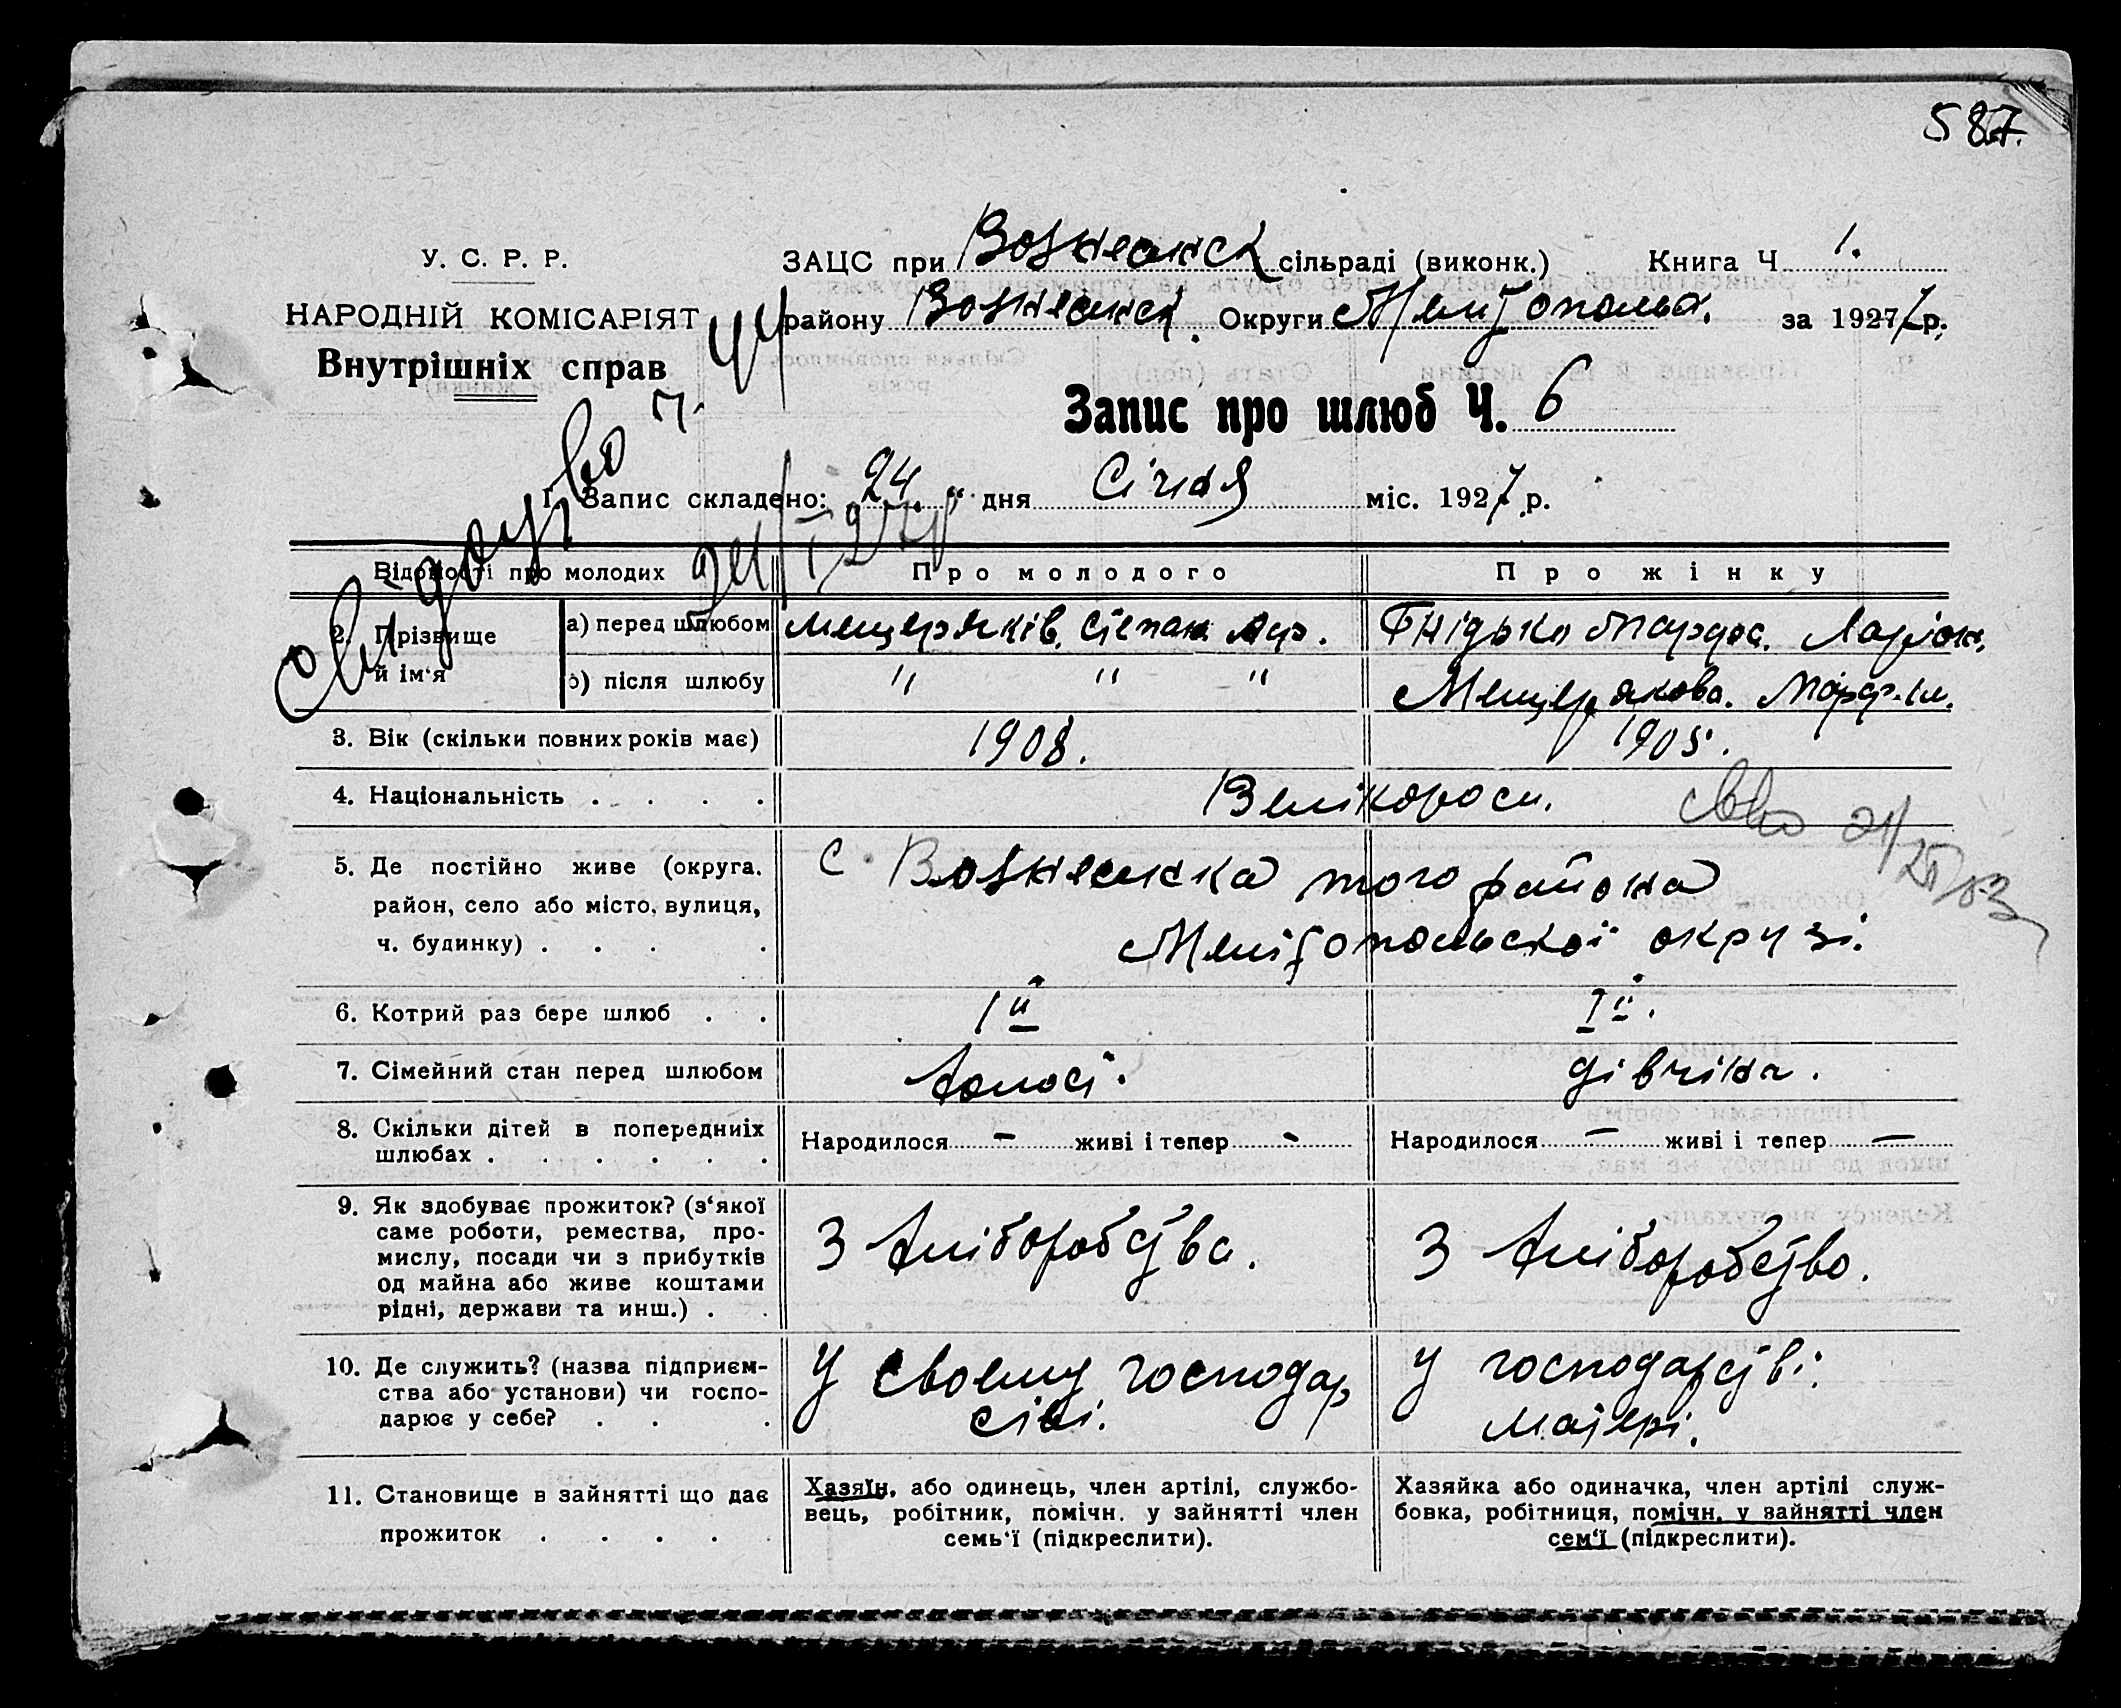 587.
У. С. Р. Р.
НАРОДНІЙ КОМІСАРІЯТ
Внутрішніх справ
ЗАЦС при Вознесенск сільраді (виконк.) Книга Ч 1.
району Вознесенск. Округи Мелітопольск. за 1927 р.
Запис про шлюб Ч. 6
1. Запис складено: 24 " дня Січня міс. 1927 р.
Відомості про молодих
Про молодого
Про жінку
2. Прізвище й ім'я
а) перед шлюбом
Мещеряків. Степан
Гнідько Марфа. Ларіон.
б) після шлюбу
" " "
Мещерякова. Марф.
3. Вік (скільки повних років має)
1908.
1905.
4. Національність . . . .
Велікороси.
5. Де постійно живе (округа.
район, село або місто, вулиця,
ч. будинку) . . . .
с. Вознесенка того района
Мелітопольскоі окрузі.
6. Котрий раз бере шлюб . .
1й
Iй.
7. Сімейний стан перед шлюбом
холост.
дівчіна.
8. Скільки дітей в попередниіх
шлюбах . . . . . .
Народилося - живі і тепер -
Народилося — живі і тепер —
9. Як здобуває прожиток? (з'якої
саме роботи, ремества, про-
мислу, посади чи з прибутків
од майна або живе коштами
рідні, держави та инш.) . .
З хліборобства.
З хліборобство.
10. Де служить? (назва підприєм-
ства або установи) чи госпо-
дарює у себе? . . .
У своему господар
стві.
У господарстві
матері.
11. Становище в зайнятті що дає
прожиток . . . . .
Хазяїн, або одинець, член артілі, службо-
вець, робітник, помічн. у зайнятті член
семь'ї (підкреслити).
Хазяйка або одиначка, член артілі служ-
бовка, робітниця, помічн. у зайнятті член
сем'ї (підкреслити).